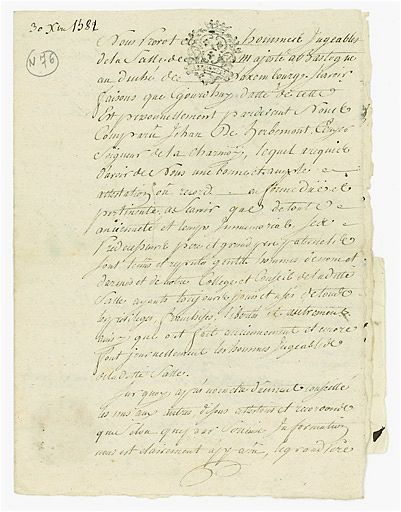 30 Xbre 1581
N 76
Nous Prevot et hommes Jugeables
de la Salle de sa majesté a Bastogne
au duché de Luxembourg, scavoir
faisons que
Est personnellement par devant Nous
Comparu Jehan De Herbemont, Ecuyer
Seigneur de la Charmoy, lequel requis
d'avoir de Nous une bonne et ample
attestation ou record en forme due et
pertinente, de scavoir que de toute
ancienneté et temps immemorial ses
Predecesseurs pere et grand pere paternels
sont tenus et reputés gentils hommes de nom et
d'armes et de notre College et Conseil de la ditte
Salle ayants toujours jouis et usés de toutte
privileges, franchises, liberté et autrement
que ont fait anciennement et encore
font journellement les hommes Jugeables de
la ditte Salle.
Sur quoy ayant
les uns aux autres disons attestons et recordons
que selon que par Information
nous est clairement apparu, le grand Pere